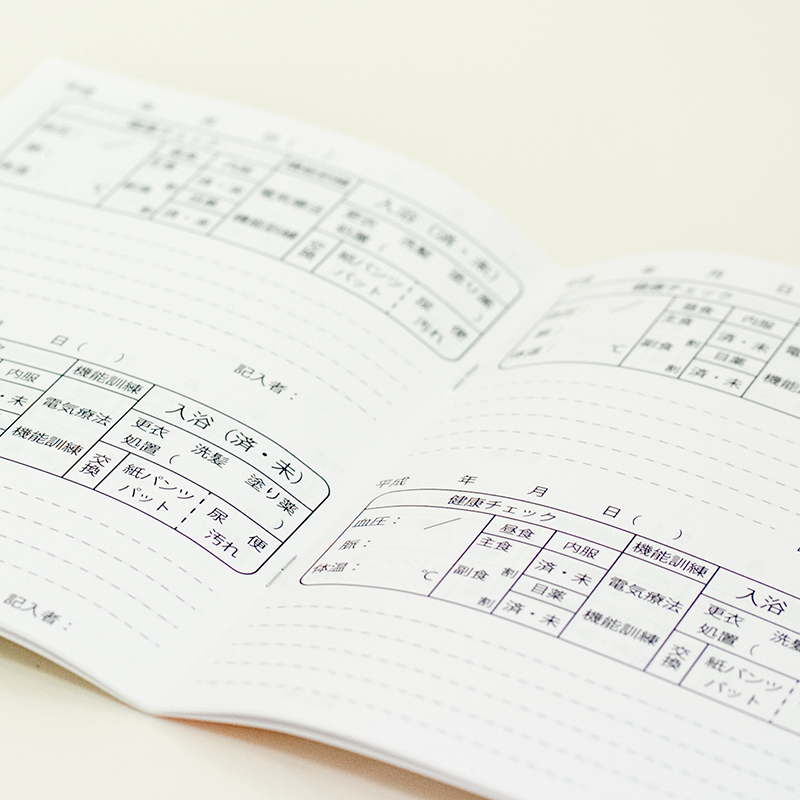 健康チェック
内服
済・未
目薬
済・未
機能訓練
電気療法
機能訓練
入浴（済・未）
更衣 洗髪 塗り薬
処置（ ）
交換
紙パンツ
パット
尿 便
汚れ
日（ ）
記入者：
内服
・未
・未
機能訓練
電気療法
機能訓練
入浴（済・未）
更衣 洗髪 塗り薬
処置（ ）
交換
紙パンツ
パット
尿 便
汚れ
記入者：
年 月 日
健康チェック
℃
昼食
主食 割
副食
割
内服
済・未
目薬
済・未
平成 年 月 日（ ）
健康チェック
血圧： ／
脈：
体温： ℃
昼食
主食
割
副食
割
内服
済・未
目薬
済・未
機能訓練
電気療法
機能訓練
入浴
更衣 洗髪
処置（
交換
紙パンツ
パット